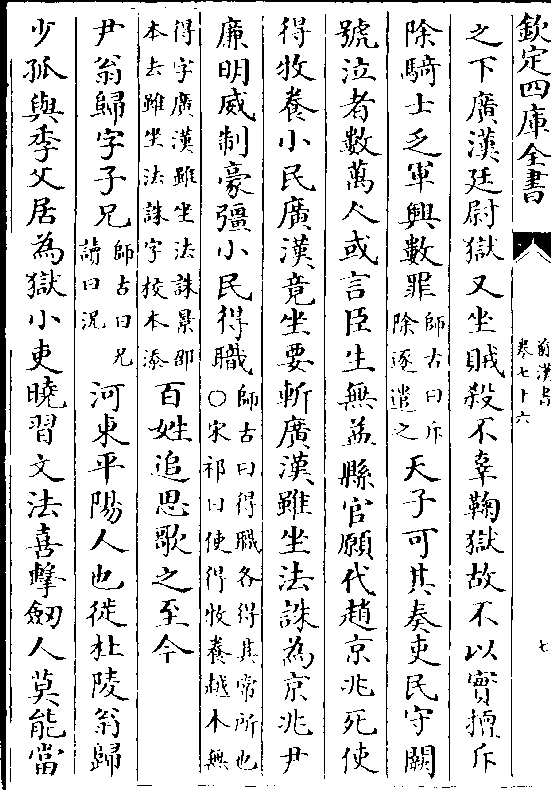 欽定四庫全書
前漢書
卷七十六
七
之下廣漢廷尉獄又坐賊殺不辜鞠獄故不以實擅斥
除騎士乏軍興數罪師古曰斥
除逐遣之天子可其奏吏民守闕
號泣者數萬人或言臣生無益縣官願代趙京兆死使
得牧養小民廣漢竟坐要斬廣漢雖坐法誅為京兆尹
廉明威制豪彊小民得職師古曰得職各得其常所也
○宋祁曰使得牧養越本無
得字廣漢雖坐法誅景邵
本去雖坐法誅字校本添百姓追思歌之至今
尹翁歸字子兄師古曰兄
讀曰況河東平陽人也徙杜陵翁歸
少孤與季父居為獄小吏曉習文法喜擊劒人莫能當